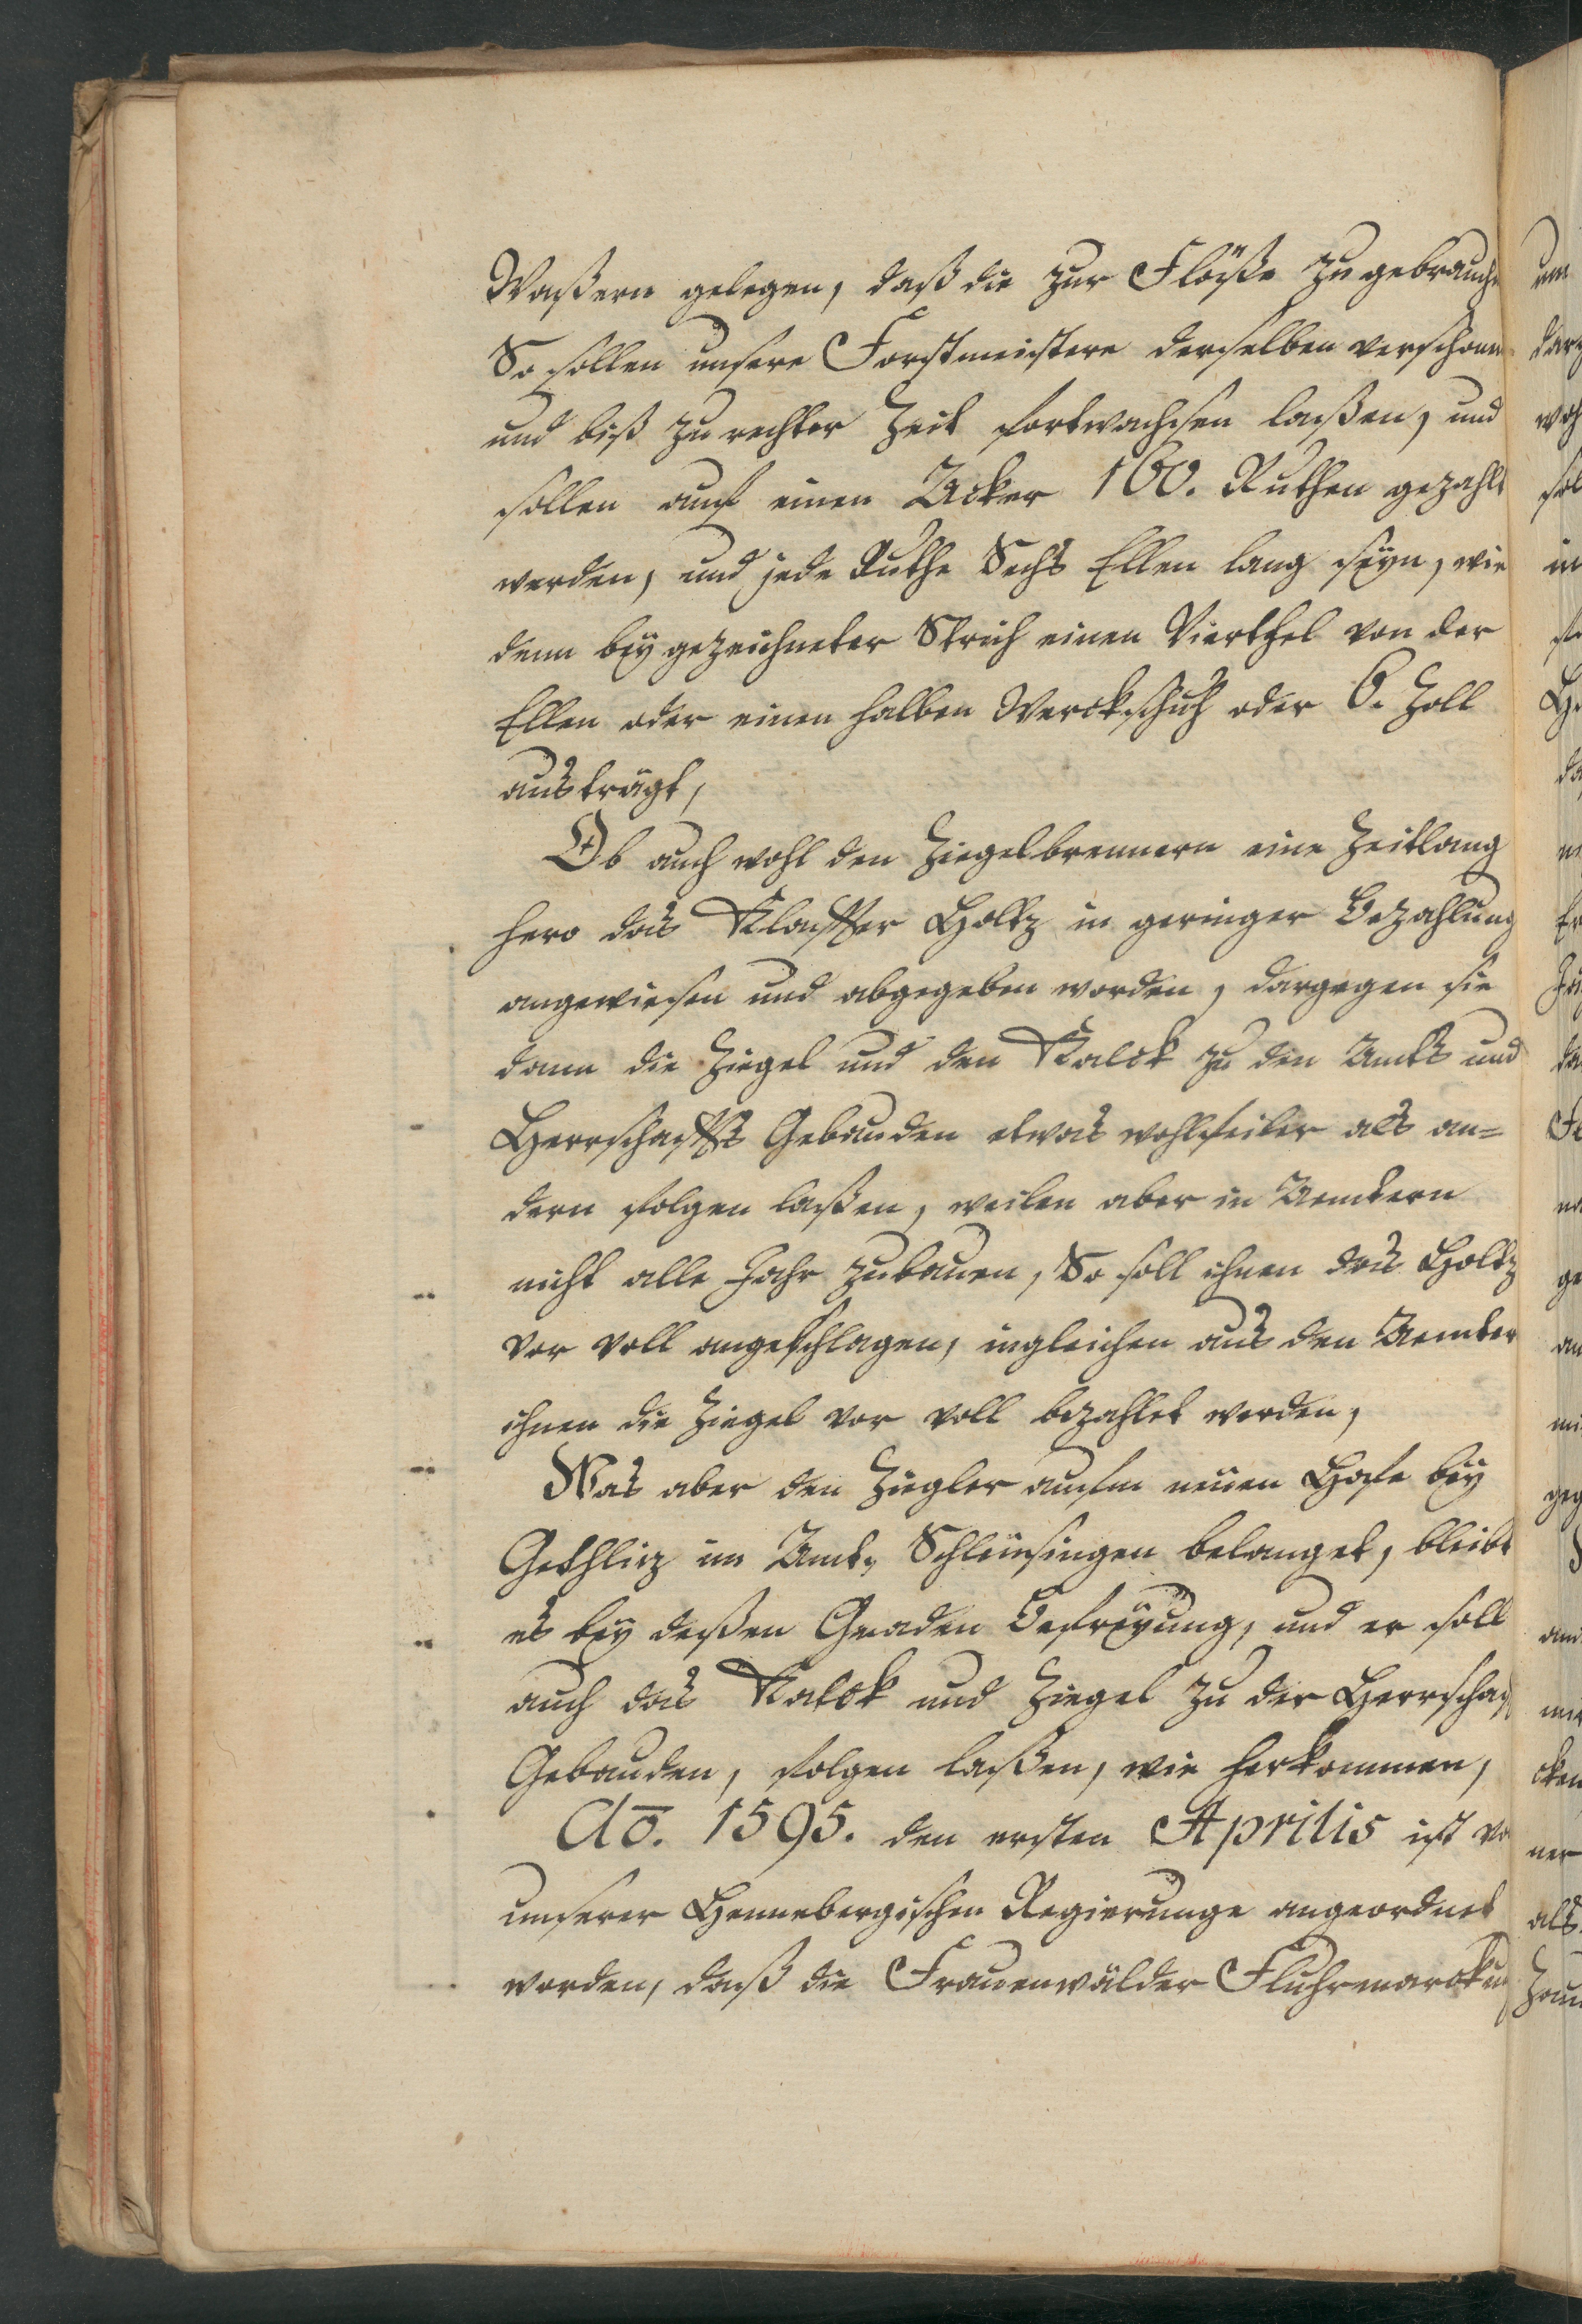 Waßern gelegen, daß die zur Flöße zu gebrauche
So sollen unsere Forstmeistere derselben verschonen
und biß zu rechter Zeit fortwachsen laßen, und
sollen auf einen Acker 160. Ruthen gezahlt
werden, und jede Ruthe Sechs Ellen lang seyn, wie
denn beygezeichneter Strich einen Vierthel von der
Ellen oder einen halben Werckschuh oder 6. Zoll
austrägt,
Ob auch wohl den Ziegelbrennern eine Zeitlang
hero das Klaffter Holtz in geringer Bezahlung
angewiesen und abgegeben worden, dargegen sie
dann die Ziegel und den Kalck zu den Ambts und
Herrschaffts Gebauden etwas wohlfeiler als an=
dern folgen laßen, weilen aber in Aembtern
nicht alle Jahr zubauen, So soll ihnen das Holtz
vor voll angeschlagen, ingleichen aus den Aembter
ihnen die Ziegel vor voll bezahlet werden,
Was aber den Ziegler aufm neuen Hofe bey
Gethliz im Ambt, Schleusingen belanget, bleibt
es bey deßen Gnaden Befreyung, und er soll
auch das Kalck und Ziegel zu der Herrschaf
Gebauden, folgen laßen, wie herkommen,
Ao. 1595. den ersten Aprilis ist vo
unserer Hennebergischen Regierunge angeordnet
worden, daß die Frauenwälder Fluhrmarckun